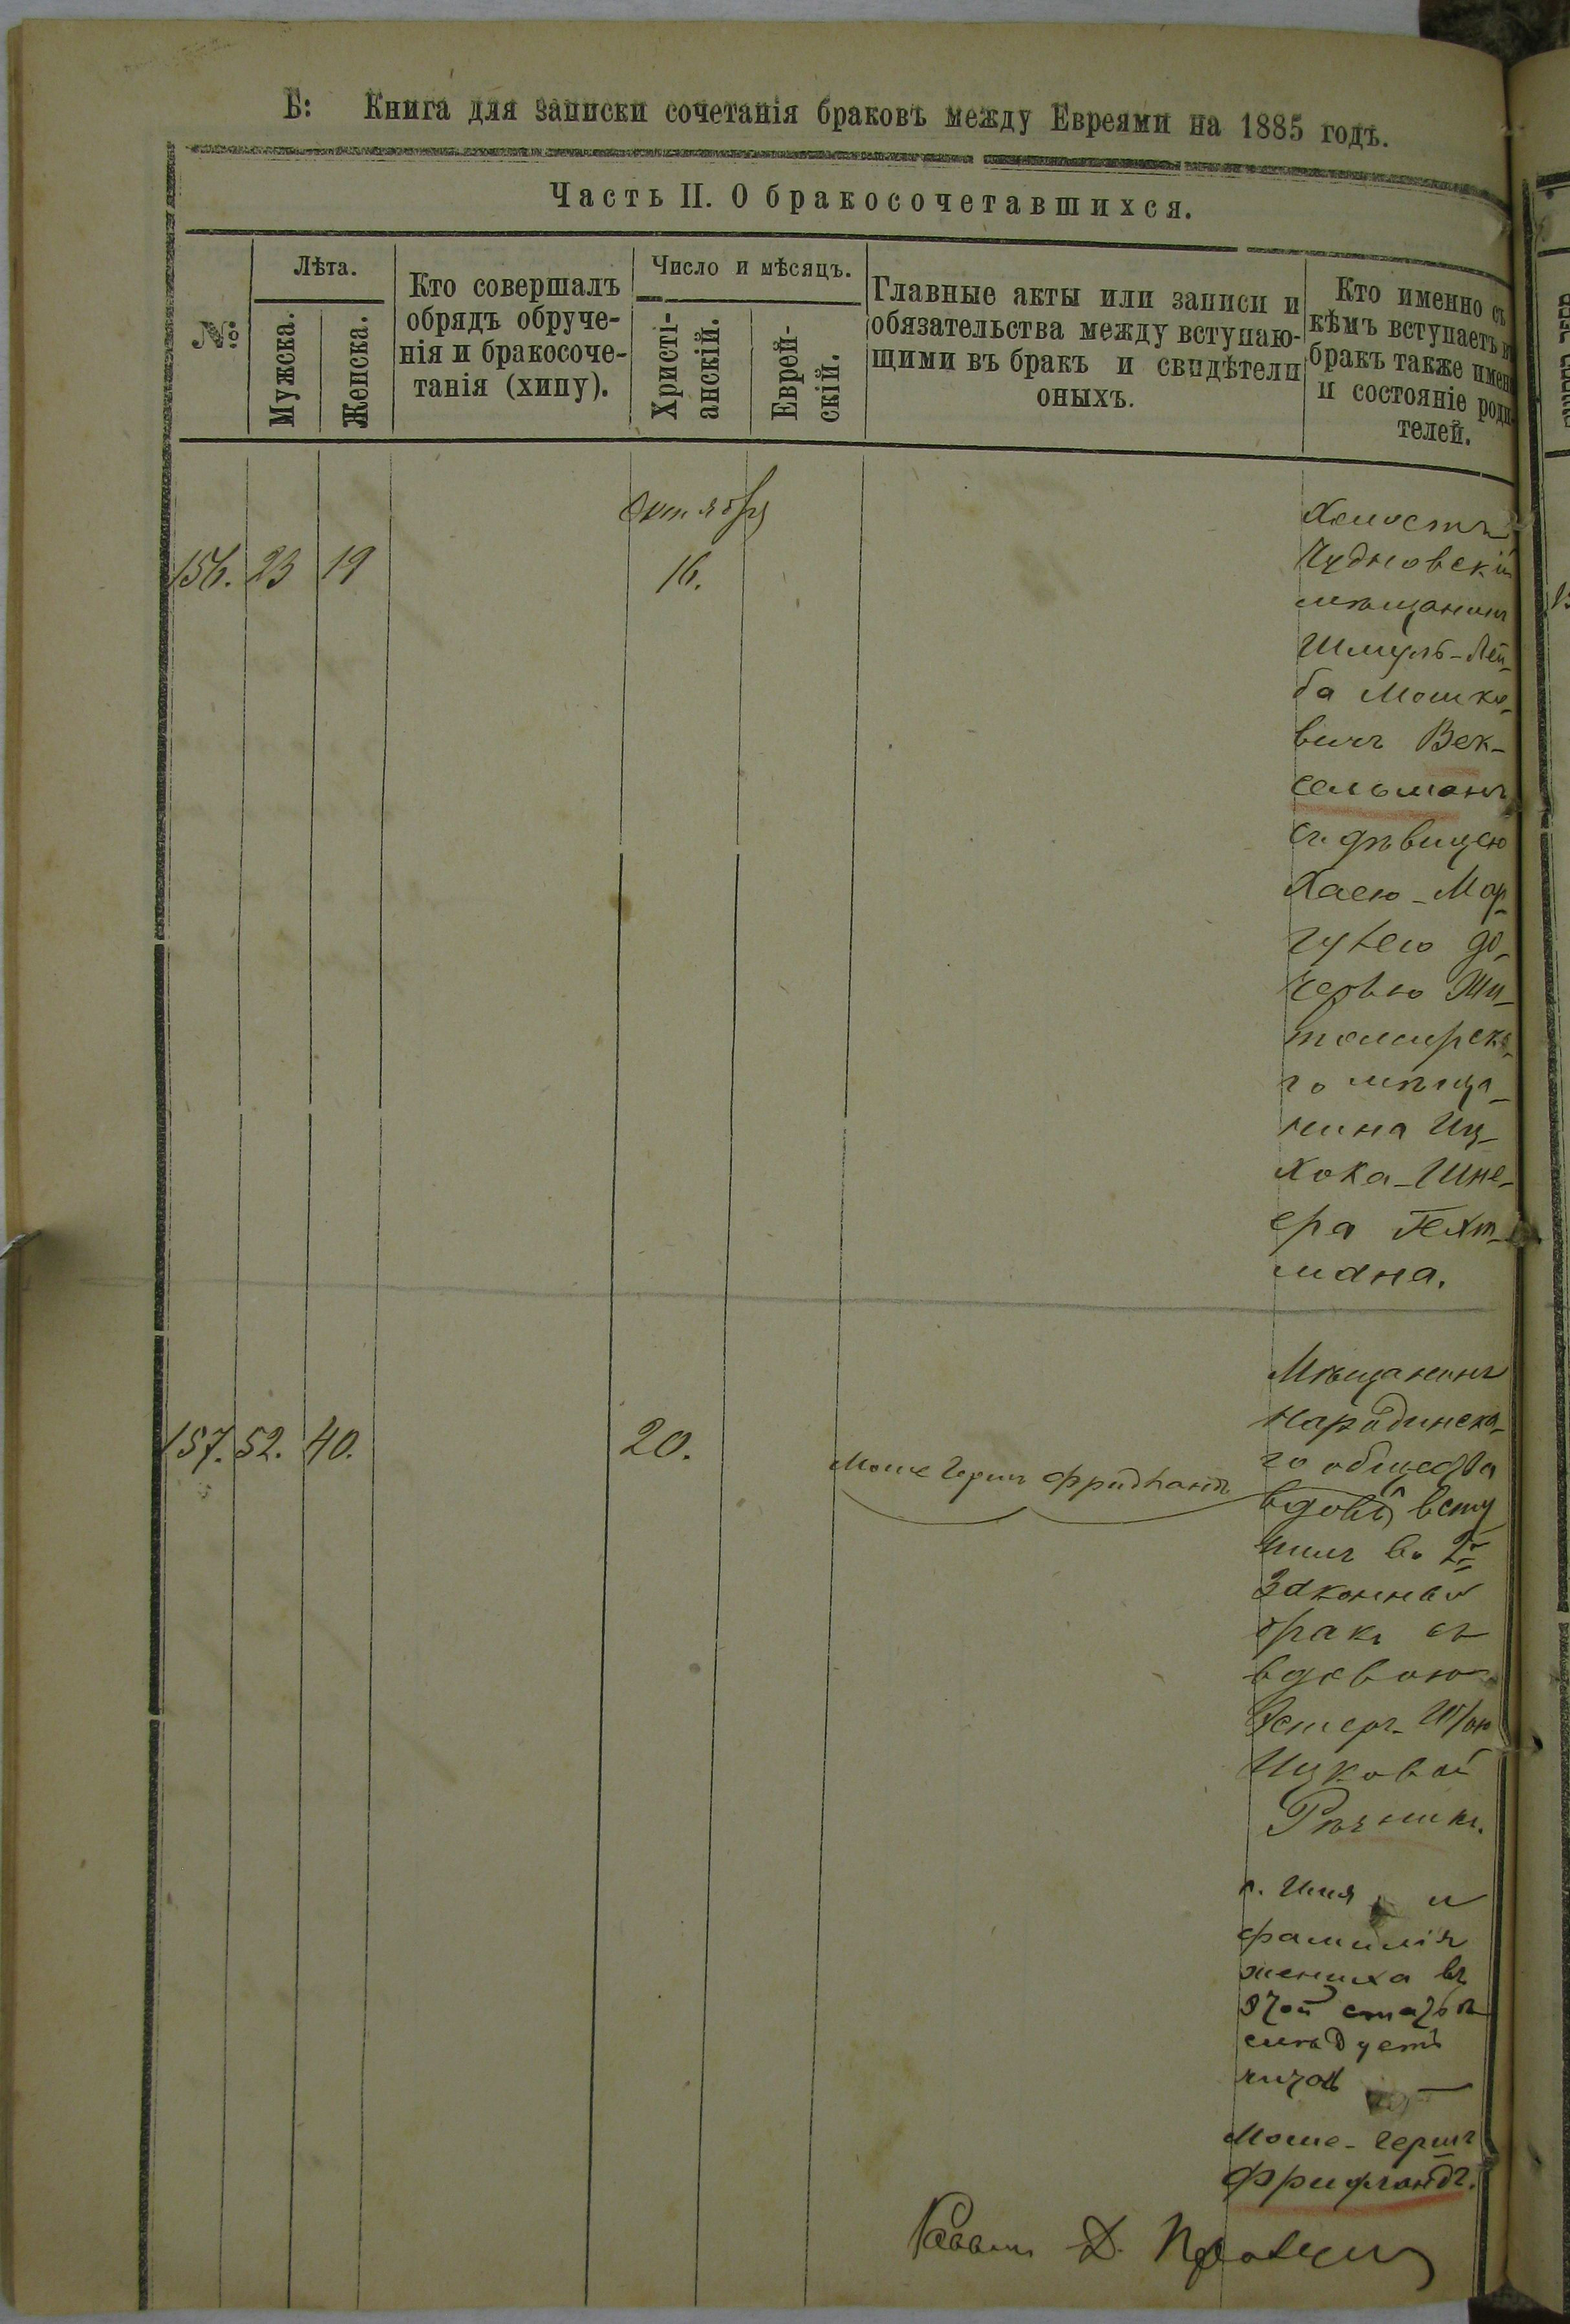 Б: Книга для записки сочетанія браковъ между Евреями на 1885 годъ.
Часть II. О бракосочетавшихся.
№
Лѣта.
Мужска.
Женска.
Кто совершалъ
обрядъ обруче-
нія и бракосоче-
танія (хипу).
Число и мѣсяцъ.
Христі-
анскій.
Еврей-
скій.
Главные акты или записи и
обязательства между вступаю-
щими въ бракъ и свидѣтели
оныхъ.
Кто именно съ
кѣмъ вступаетъ въ
бракъ также имена
и состояніе роди-
телей.
Октября
156. 23 19 16.
Холостъ
Чудновскій
мѣщанинъ
Шмуль-Лей-
ба Мошко-
вичъ Век-
сельманъ
съ дѣвицею
Хаею-Мар-
до-
черью Жи-
томирска-
го мѣща-
нина Иц-
хока-Шне-
ера Гехт-
мана.
157. 52. 40. 20.
Моше Герш Фридландъ
Мѣщанинъ
Народическа-
го общества
вдовъ всту
пилъ во 2й
законный
бракъ съ
вдовою
Эстеръ-
Ицковой
Рѣзникъ.
Имя и
фамилія
жениха въ
этой статьѣ
слѣдуетъ
читать
Моше-Гершъ
Фридландъ.
Раввинъ